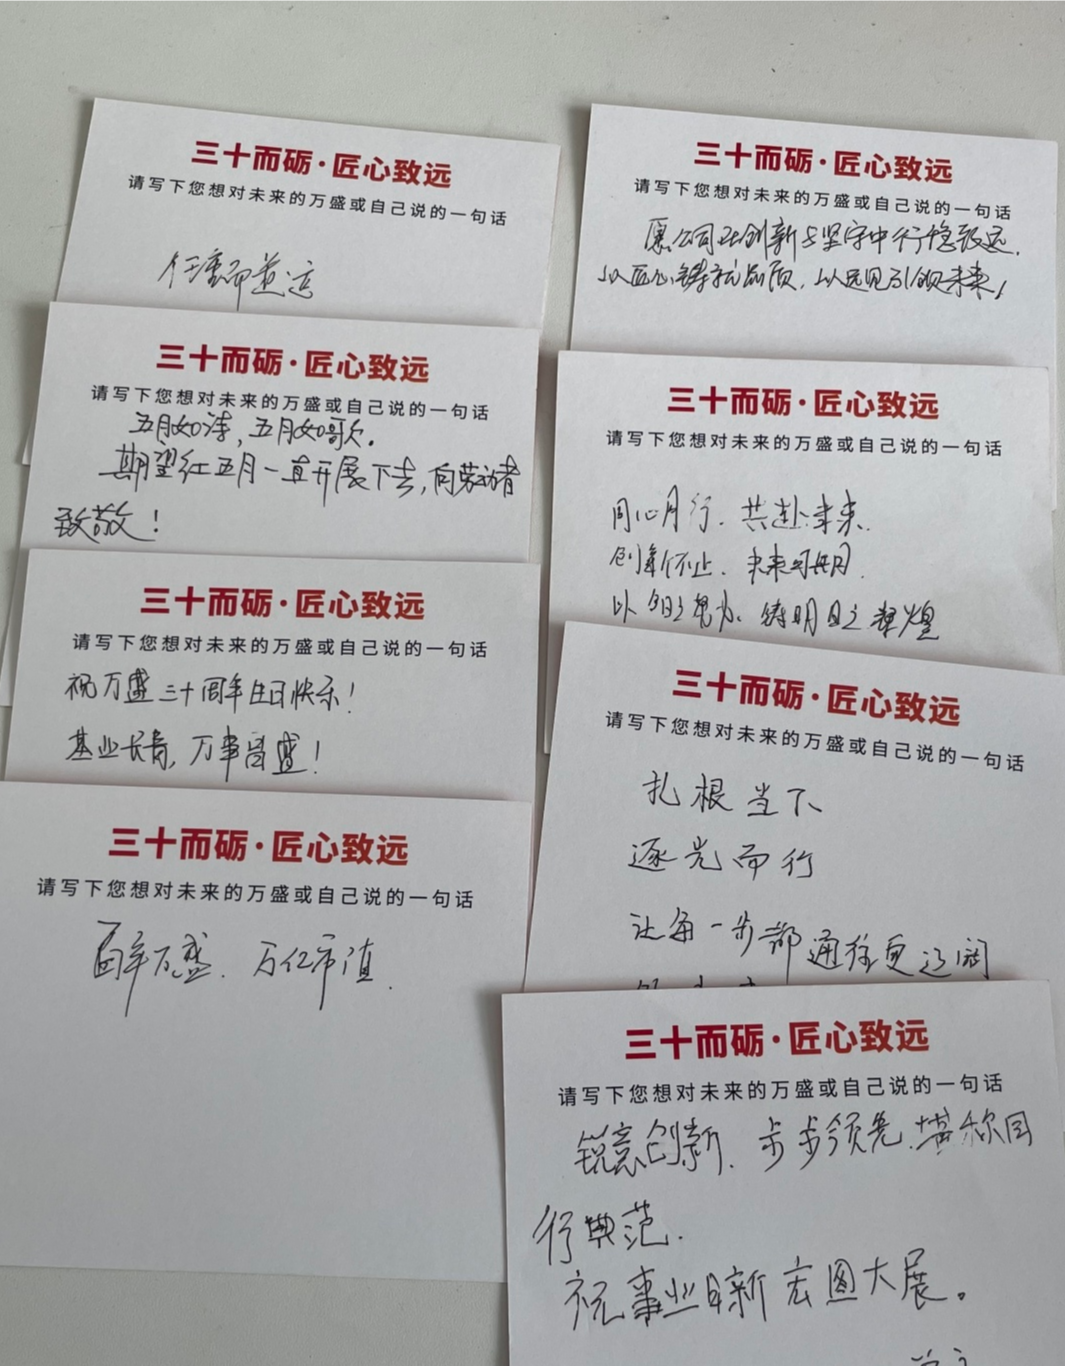 三十而砺·匠心致远
请写下您想对未来的万盛或自己说的一句话
任重而道远
三十而砺·匠心致远
请写下您想对未来的万盛或自己说的一句话
五月如诗，五月如歌.
期望红五月一直开展下去，向劳动者
致敬！
三十而砺·匠心致远
请写下您想对未来的万盛或自己说的一句话
祝万盛三十周年生日快乐！
基业长青，万事昌盛！
三十而砺·匠心致远
请写下您想对未来的万盛或自己说的一句话
百年万盛、万亿市值.
三十而砺·匠心致远
请写下您想对未来的万盛或自己说的一句话
愿公司在创新与坚守中行稳致远.
以匠心铸就品质，以远见引领未来！
三十而砺·匠心致远
请写下您想对未来的万盛或自己说的一句话
同心同行、共赴未来.
创新不止、未来可期.
以今日之努力、铸明日之辉煌
三十而砺·匠心致远
请写下您想对未来的万盛或自己说的一句话
扎根当下
逐光而行
让每一步都通往更辽阔
三十而砺·匠心致远
请写下您想对未来的万盛或自己说的一句话
锐意创新、步步领先.堪称同
行典范.
祝事业日新宏图大展。